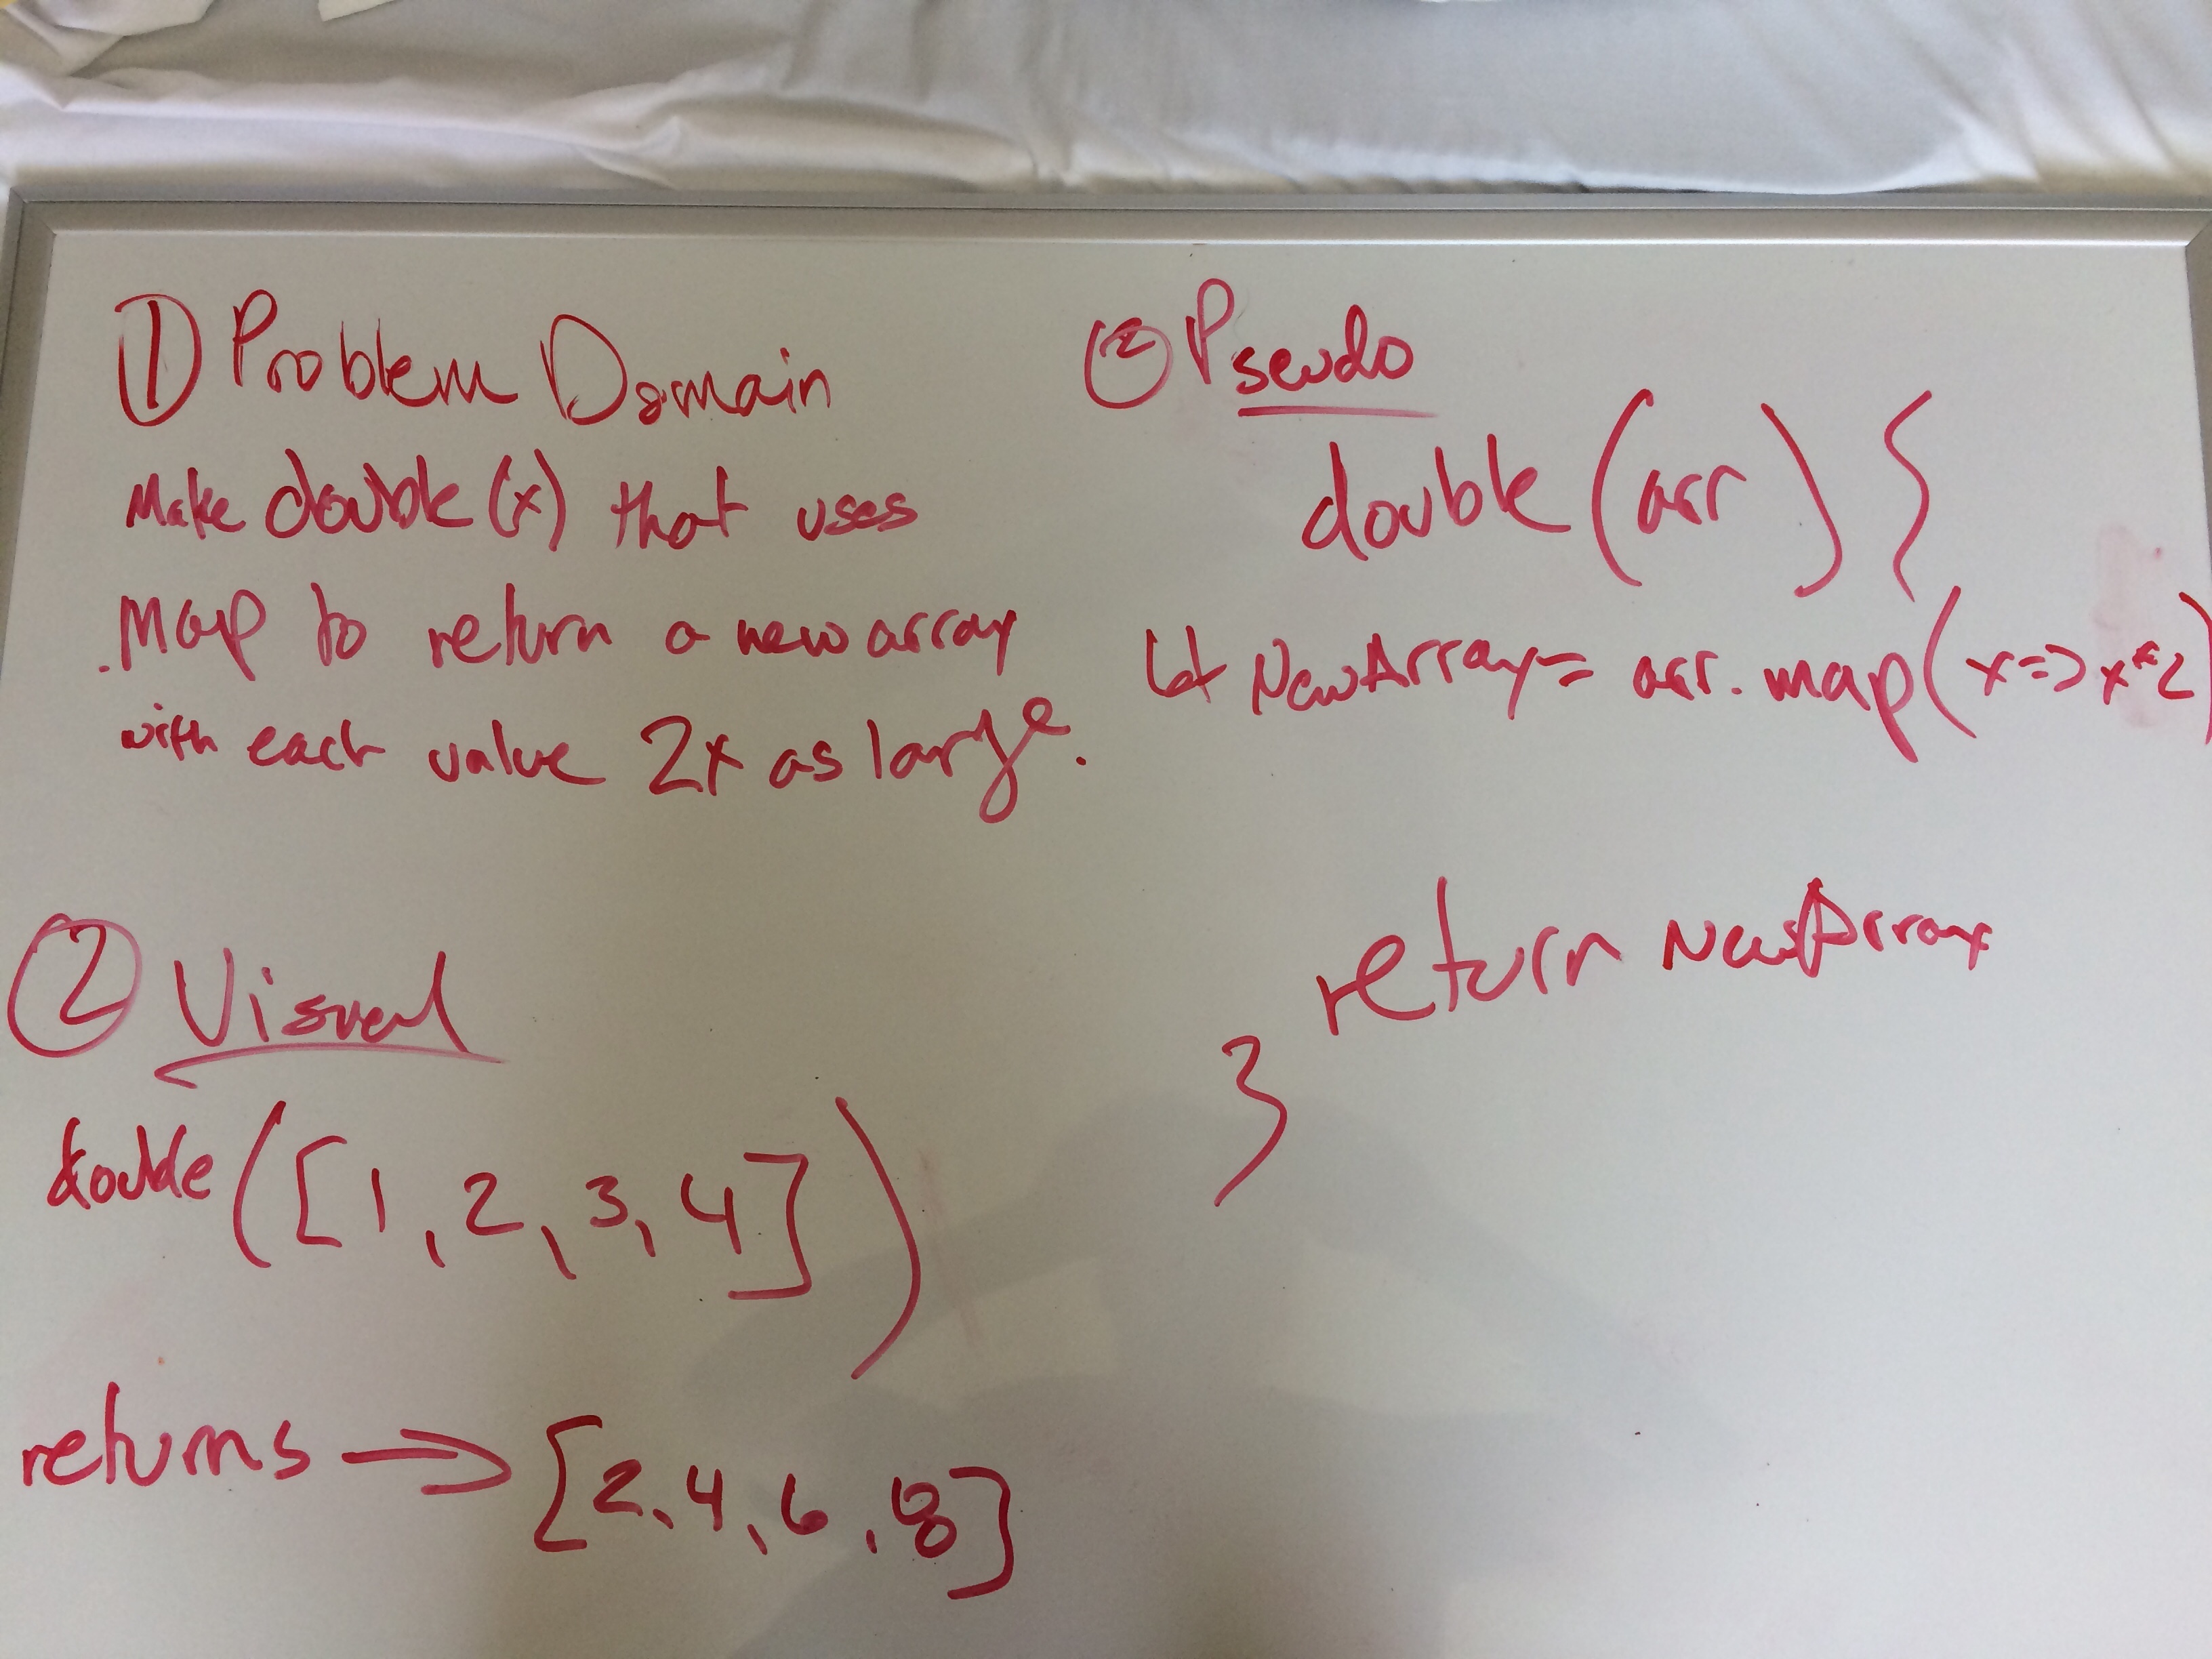 ① Problem Domain
Make double(x) that uses
map to return a new array
with each value 2x as large.
② Visual
double([1, 2, 3, 4])
returns → [2, 4, 6, 8]
② Pseudo
double(arr) {
let NewArray = arr.map(x => x*2)
return NewArray
}